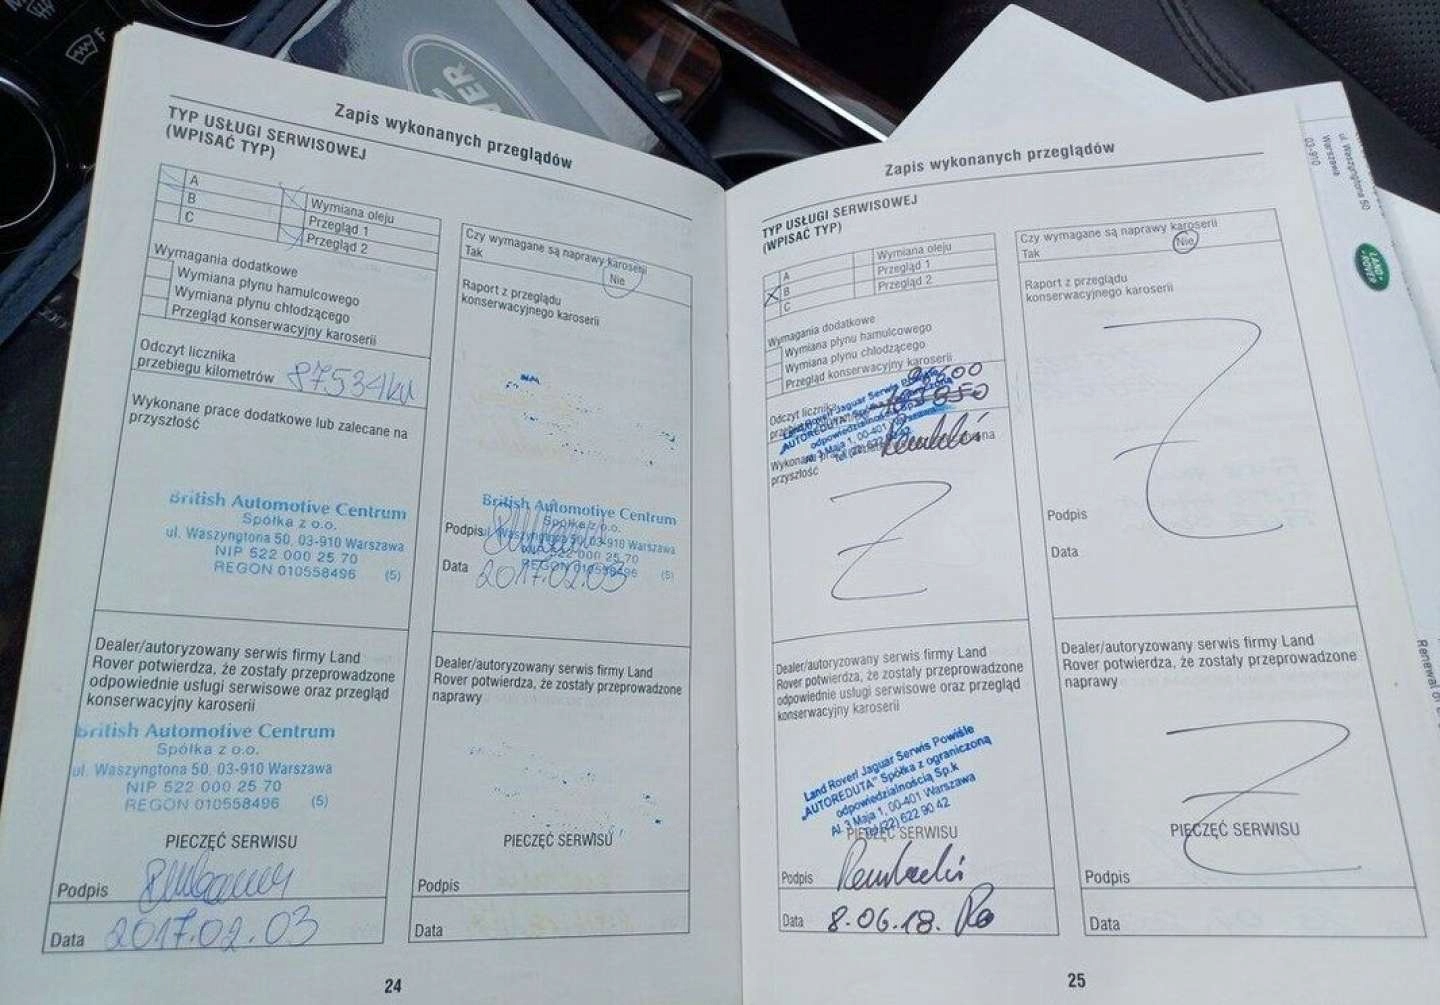 F
OVER
Zapis wykonanych przeglądów
TYP USŁUGI SERWISOWEJ
(WPISAĆ TYP)
A
B
C
Wymiana oleju
Przegląd 1
Przegląd 2
Wymagania dodatkowe
Wymiana płynu hamulcowego
Wymiana płynu chłodzącego
Przegląd konserwacyjny karoserii
Odczyt licznika
przebiegu kilometrów 87534km
Wykonane prace dodatkowe lub zalecane na
przyszłość
British Automotive Centrum
Spółka z o.o.
ul. Waszyngtona 50, 03-910 Warszawa
NIP 522 000 25 70
REGON 010558496 (5)
Dealer/autoryzowany serwis firmy Land
Rover potwierdza, że zostały przeprowadzone
odpowiednie usługi serwisowe oraz przegląd
konserwacyjny karoserii
British Automotive Centrum
Spółka z o.o.
ul. Waszyngtona 50, 03-910 Warszawa
NIP 522 000 25 70
REGON 010558496 (5)
PIECZĘĆ SERWISU
Podpis
Data 2017.02.03
Czy wymagane są naprawy karoserii
Tak Nie
Raport z przeglądu
konserwacyjnego karoserii
British Automotive Centrum
Spółka z o.o.
Podpis ul. Waszyngtona 50, 03-910 Warszawa
NIP 522 000 25 70
REGON 010558496 (5)
Data 2017.02.03
Dealer/autoryzowany serwis firmy Land
Rover potwierdza, że zostały przeprowadzone
naprawy
PIECZĘĆ SERWISU
Podpis
Data
24
Zapis wykonanych przeglądów
TYP USŁUGI SERWISOWEJ
(WPISAĆ TYP)
A
B
C
Wymiana oleju
Przegląd 1
Przegląd 2
Wymagania dodatkowe
Wymiana płynu hamulcowego
Wymiana płynu chłodzącego
Przegląd konserwacyjny karoserii
Odczyt licznika
Land Rover/ Jaguar Serwis
"AUTOREDUTA"
odpowiedzialnością
Al. 3 Maja 1, 00-401
Tel (22) 622
Wykonane
przyszłość
Dealer/autoryzowany serwis firmy Land
Rover potwierdza, że zostały przeprowadzone
odpowiednie usługi serwisowe oraz przegląd
konserwacyjny karoserii
Land Rover/ Jaguar Serwis Powiśle
„AUTOREDUTA" Spółka z ograniczoną
odpowiedzialnością Sp.k
Al. 3 Maja 1, 00-401 Warszawa
Tel (22) 622 90 42
PIECZĘĆ SERWISU
Podpis
Data 8.06.18.
Czy wymagane są naprawy karoserii
Tak Nie
Raport z przeglądu
konserwacyjnego karoserii
Podpis
Data
Dealer/autoryzowany serwis firmy Land
Rover potwierdza, że zostały przeprowadzone
naprawy
PIECZĘĆ SERWISU
Podpis
Data
25
ul. Waszyngtona 50
03-910 Warszawa
LAND
ROVER
Renewal of